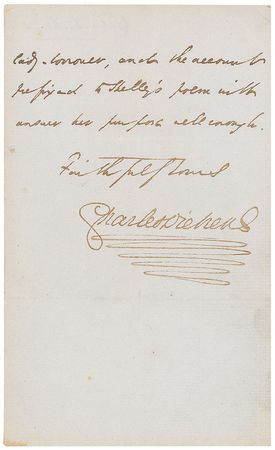 lady-borrower, and the account
prefixed to Shelley's poem will
answer her purpose well enough.
Faithfully Yours
Charles Dickens